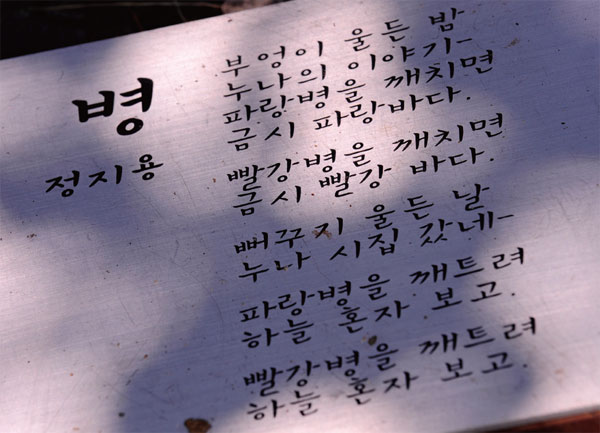 병
정지용
부엉이 울든 밤
누나의 이야기-
파랑병을 깨치면
금시 파랑바다.
빨강병을 깨치면
금시 빨강 바다.
뻐꾸지 울든 날
누나 시집 갔네-
파랑병을 깨트려
하늘 혼자 보고.
빨강병을 깨트려
하늘 혼자 보고.